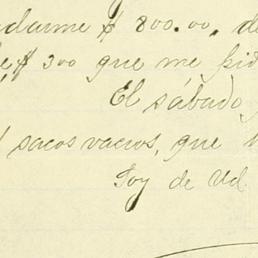 darme $ 800.00, de
$ 300 que me pid
El sábado
sacos vacios, que
Soy de Ud